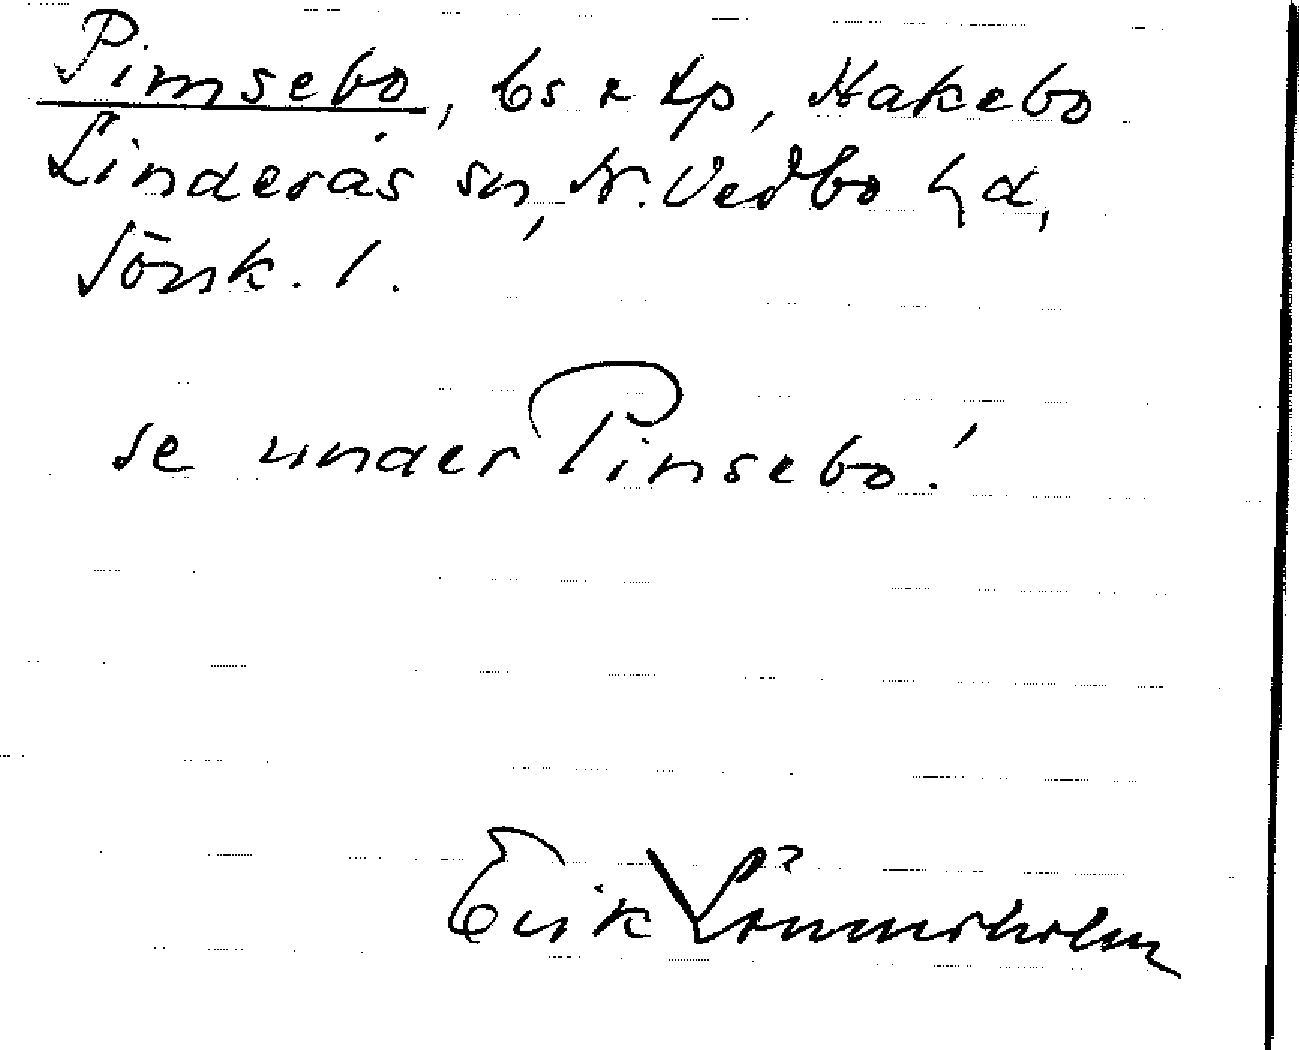 Pimsebo, bs o tp, Hakebo
Linderås sn, N. Vedbo hd,
Jönk. l.
se under Pinsebo!
Erik Lönnerholm